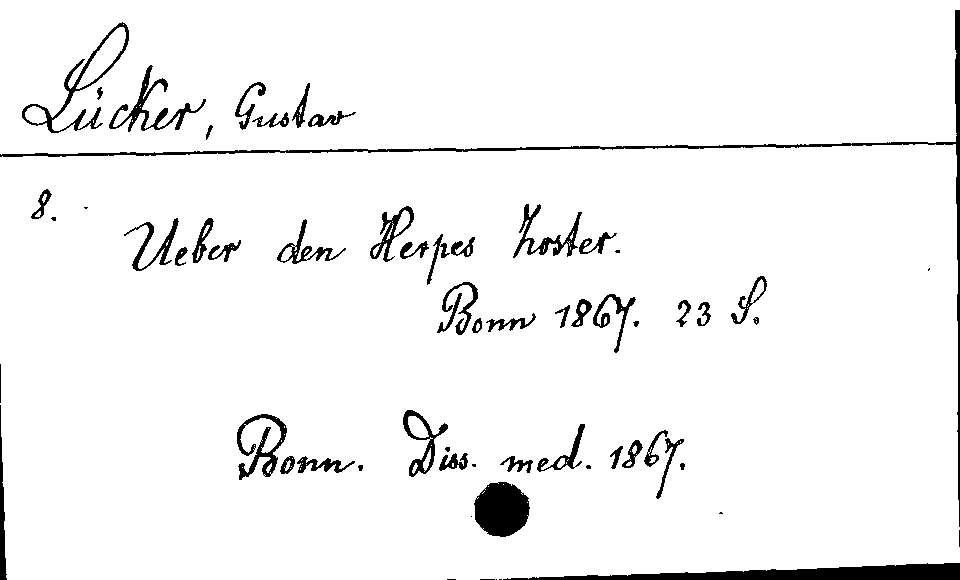 Lücker, Gustav
8.
Ueber den Herpes Zoster.
Bonn 1867. 23 S.
Bonn. Diss. med. 1867.